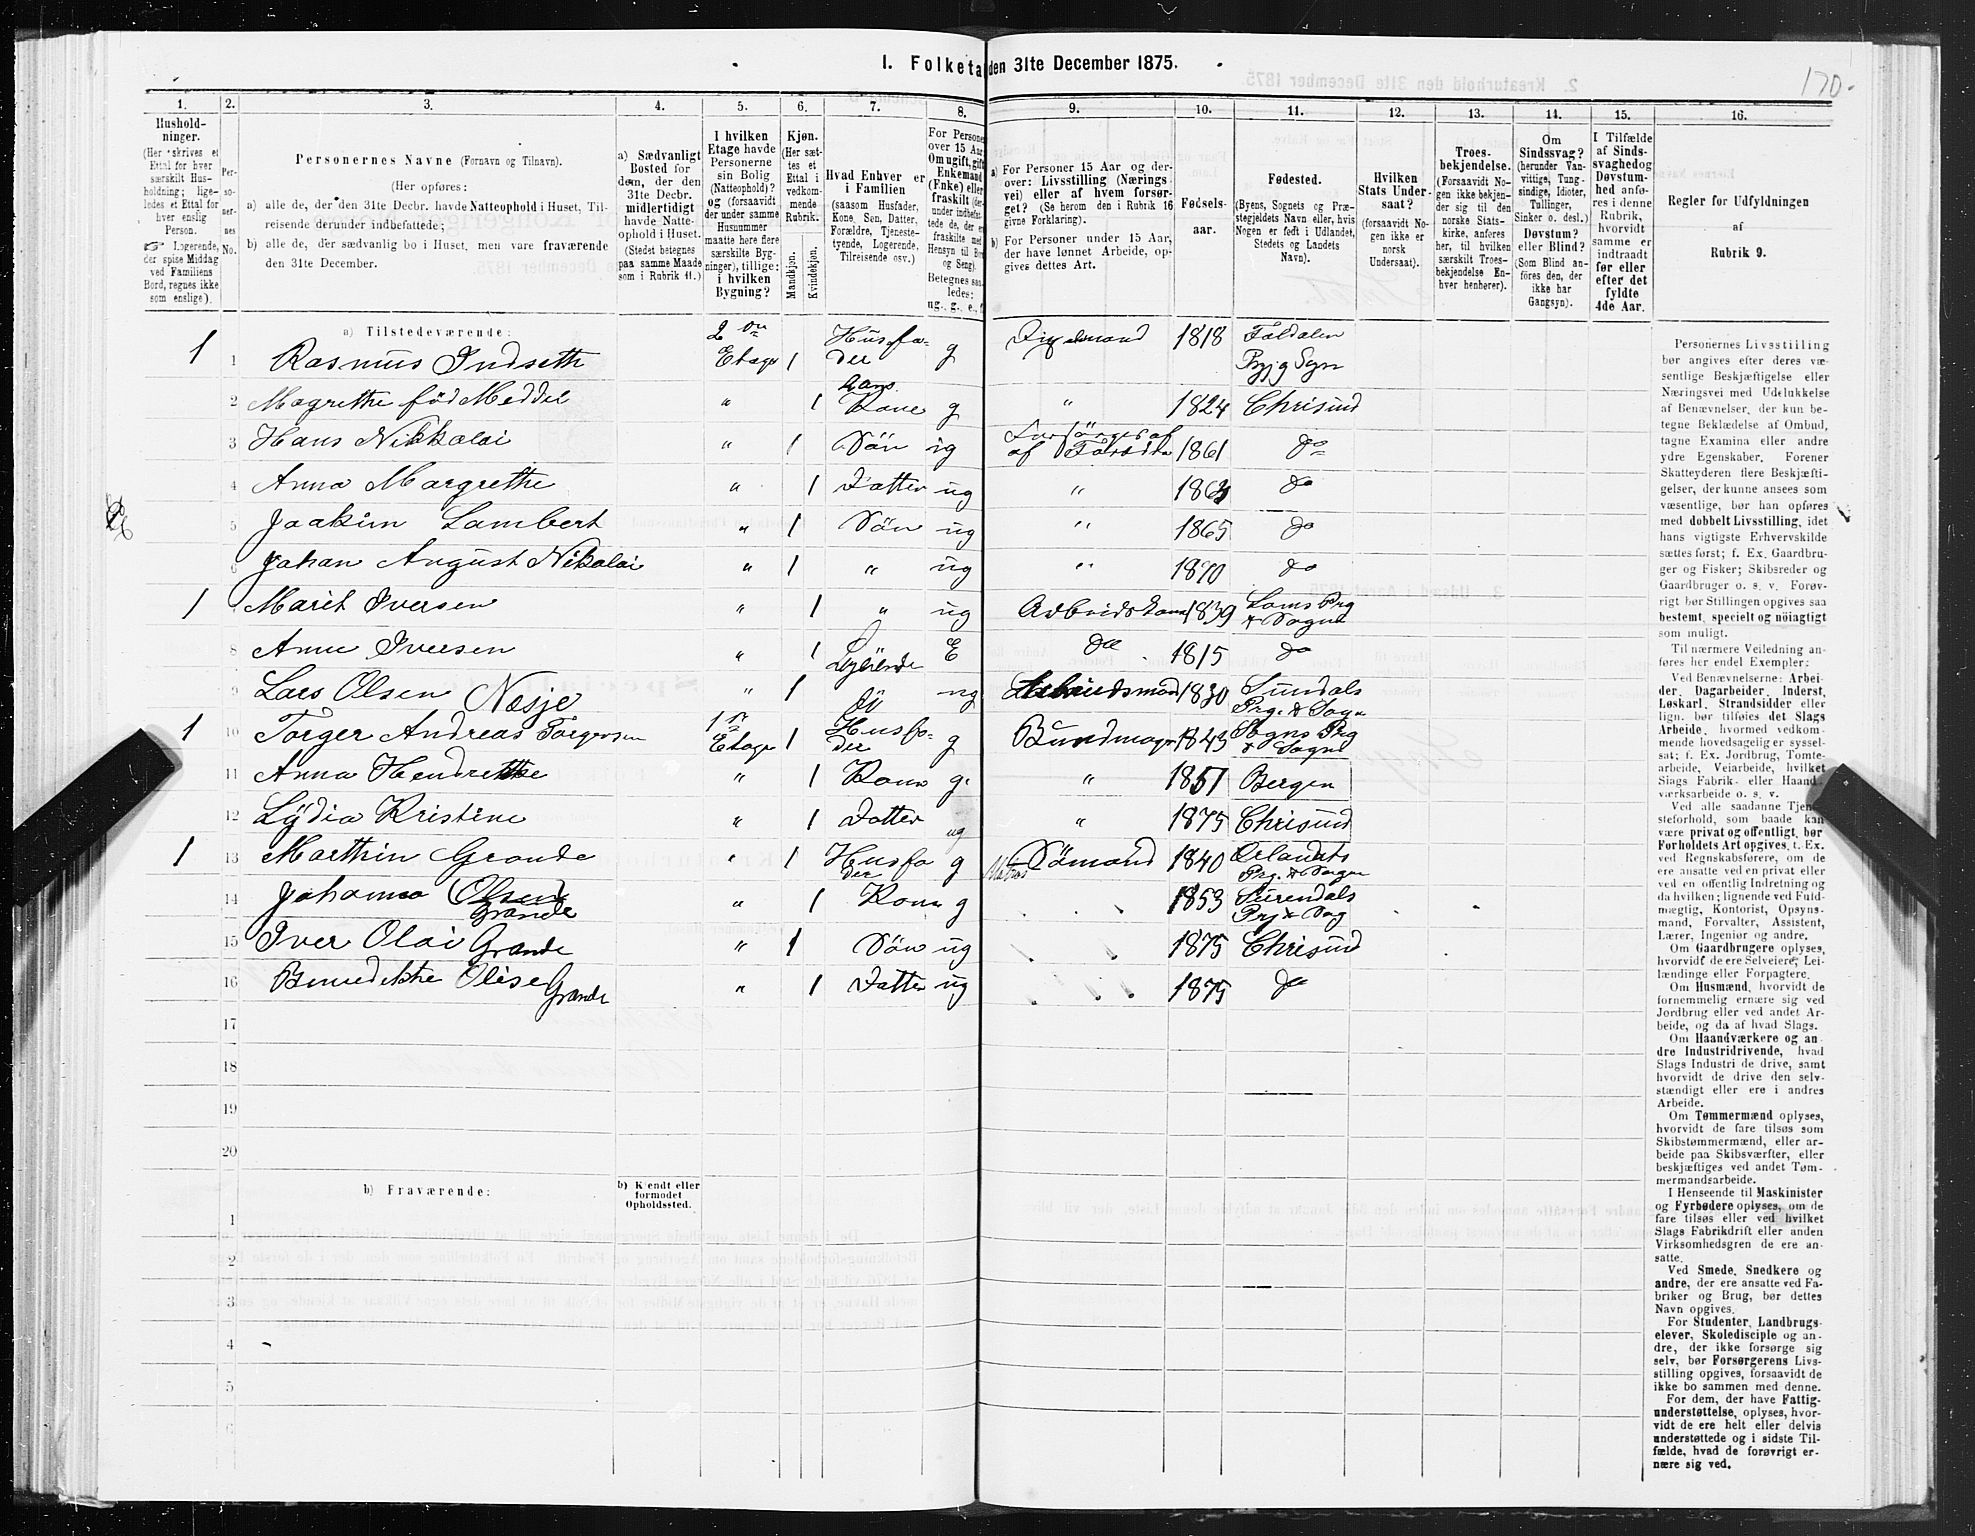 1. Folketa den 31te December 1875.
170.
1. 2. 3. 4. 5. 6. 7. 8. 9. 10. 11. 12. 13. 14. 15. 16.
Hushold-
ninger.
(Her skrives et
Ettal for hver
særskilt Hus-
holdning; lige-
ledes et Ettal for
hver enslig
Person.
☞ Logerende,
der spise Middag
ved Familiens
Bord, regnes ikke
som enslige).
Per-
so-
ner-
nes
No.
Personernes Navne (Fornavn og Tilnavn).
(Her opføres:
a) alle de, der den 31te Decbr. havde Natteophold i Huset, Til-
reisende derunder indbefattede;
b) alle de, der sædvanlig bo i Huset, men vare fraværende
den 31te December.
a) Sædvanligt
Bosted for
dem, der den
31te Decbr.
midlertidigt
havde Natte-
ophold i Huset.
(Stedet betegnes
paa samme Maade
som i Rubrik 11.)
I hvilken
Etage havde
Personerne
sin Bolig
(Natteophold)?
og (forsaavidt
der under samme
Husnummer
maatte høre flere
særskilte Byg-
ninger), tillige:
i hvilken
Bygning?
Kjøn.
(Her sæt-
tes et
Ettal i
vedkom-
mende
Rubrik.
Mandkjøn.
Kvindekjøn.
Hvad Enhver er
i Familien
(saasom Husfader,
Kone, Søn, Datter,
Forældre, Tjeneste-
tyende, Logerende,
Tilreisende osv.)
For Persone
over 15 Aar
Om ugift, gift
Enkemand
(Enke) eller
fraskilt (der-
under indbefat-
tede de, der er
fraskilte med
Hensyn til Bor
og Seng).
Betegnes saa-
ledes:
ug., g., e., f.
a) For Personer 15 Aar og der-
over: Livsstilling (Nærings-
vei) eller af hvem forsør-
get? (Se herom den i Rubrik 16
givne Forklaring).
b) For Personer under 15 Aar,
der have lønnet Arbeide, op-
gives dettes Art.
Fødsels-
aar.
Fødested.
(Byens, Sognets og Præ-
stegjeldets Navn eller, hvis
Nogen er født i Udlandet,
Stedets og Landets
Navn).
Hvilken
Stats Under-
saat?
(forsaavidt No-
gen ikke er
norsk
Undersaat).
Troes-
bekjendelse.
(Forsaavidt No-
gen ikke bekjen-
der sig til den
norske Stats-
kirke, anføres
her, til hvilken
særskilt Troes-
bekjendelse En-
hver henhører).
Om
Sindssvag?
(herunder Van-
vittige, Tung-
sindige, Idioter,
Tullinger,
Sinker o. desl.)
Døvstum?
eller Blind?
(Som Blind an-
føres den, der
ikke har
Gangsyn).
I Tilfælde
af Sinds-
svaghed og
Døvstum-
hed anfø-
res i denne
Rubrik,
hvorvidt
samme er
indtraadt
før eller
efter det
fyldte
4de Aar.
Regler for Udfyldningen
af
Rubrik 9.
a) Tilstedeværende:
1 1 Rasmus Indseth 2den Etage 1 Husfader g 1818 Foldalen
2 Magrethe fød Meddel " 1 hans Kone g " 1824 Chrisund
3 Hans Nikkolai " 1 Søn ug Forsørges af af Forældre 1861 do
4 Anna Margrethe " 1 Datter ug " do
5 Joakim Lambert " 1 Søn ug " 1865 do
6 Johan August Nikolai " 1 " ug " 1870 do
1 Marit Iversen " 1 " ug Arbeidskone 1839 Loms Prg & Sogne
8 Anne Iversen " 1 E do 1815 do
9 Lars Olsen Nesje " 1 ug Arbeidsmand 1830 Sundals Prg. & Sogn
1 10 Torger Andreas Torgersen 1ste Etage 1 Husfader g Bundmager 1843 Sogns Prg & Sogne
11 Anna Hendrekke " 1 Kone g. " 1851 Bergen
12 Lydia Kristine " 1 Datter ug " 1875 Chrisund
1 13 Marthin Grande " 1 Husfader g Matros Sømand 1840 Ørlandets Prg. & Sogne
14 Johanna Olsen Grande " 1 Kone g 1853 Surendals Prg & Sog
15 Iver Olai Grande " 1 Søn ug 1875 Chrisund
16 Benedikke Olise Grande " 1 Datter ug 1875 do
17
18
19
20
b) Fraværende:
b) Kjendt eller
formodet
Opholdssted.
1
2
3
4
5
6
Personernes Livsstilling
bør angives efter deres væ-
sentlige Beskjæftigelse eller
Næringsvei med Udelukkelse
af Benævnelser, der kun be-
tegne Beklædelse af Ombud,
tagne Examina eller andre
ydre Egenskaber. Forener
Skatteyderen flere Beskjæfti-
gelser, der kunne ansees som
væsentlige, bør han opføres
med dobbelt Livsstilling, idet
hans vigtigste Erhvervskilde
sættes først; f. Ex. Gaardbru-
ger og Fisker; Skibsreder og
Gaardbruger o. s. v. Forøv-
rigt bør Stillingen opgives saa
bestemt, specielt og nöiagtigt
som muligt.
Til nærmere Veiledning an-
føres her endel Exempler:
Ved Benævnelserne: Arbei-
der, Dagarbeider, Inderst,
Løskarl, Strandsidder eller
lign. bør tilføies det Slags
Arbeide, hvormed vedkom-
mende hovedsagelig er syssel-
sat; f. Ex. Jordbrug, Tomte-
arbeide, Veiarbeide, hvilket
Slags Fabrik- eller Haand-
værksarbeide o. s. v.
Ved alle saadanne Tjene-
steforhold, som baade kan
være privat og offentligt, bør
Forholdets Art opgives, t. Ex.
ved Regnskabsførere, om de
ere ansatte ved en privat eller
ved en offentlig Indretning og
da hvilken; lignende ved Fuld-
mægtig, Kontorist, Opsyns-
mand, Forvalter, Assistent,
Lærer, Ingeniør og andre.
Om Gaardbrugere oplyses,
hvorvidt de ere Selveiere, Lei-
lændinge eller Forpagtere.
Om Husmænd, hvorvidt de
fornemmelig ernære sig ved
Jordbrug eller ved andet Ar-
beide, og da af hvad Slags.
Om Haandværkere og an-
dre Industridrivende, hvad
Slags Industri de drive, samt
hvorvidt de drive den selv-
stændigt eller ere i andres
Arbeide.
Om Tømmermænd oplyses,
hvorvidt de fare tilsøs som
Skibstømmermænd, eller ar-
beide paa Skibsværfter, eller
beskjæftiges ved andet Tøm-
mermandsarbeide.
I Henseende til Maskinister
og Fyrbødere oplyses, om de
fare tilsøs eller ved hvilket
Slags Fabrikdrift eller anden
Virksomhedsgren de ere an-
satte.
Ved Smede, Snedkere og
andre, der ere ansatte ved Fa-
briker og Brug, bør dettes
Navn opgives.
For Studenter, Landbrugs-
elever, Skoledisciple og an-
dre, der ikke forsørge sig
selv, bør Forsørgerens Livs-
stilling opgives, forsaavidt de
ikke bo sammen med denne.
For dem, der have Fattig-
understøttelse, oplyses, hvor-
vidt de ere helt eller delvis
understøttede og i sidste Til-
fælde, hvad de forøvrigt er-
nære sig ved.